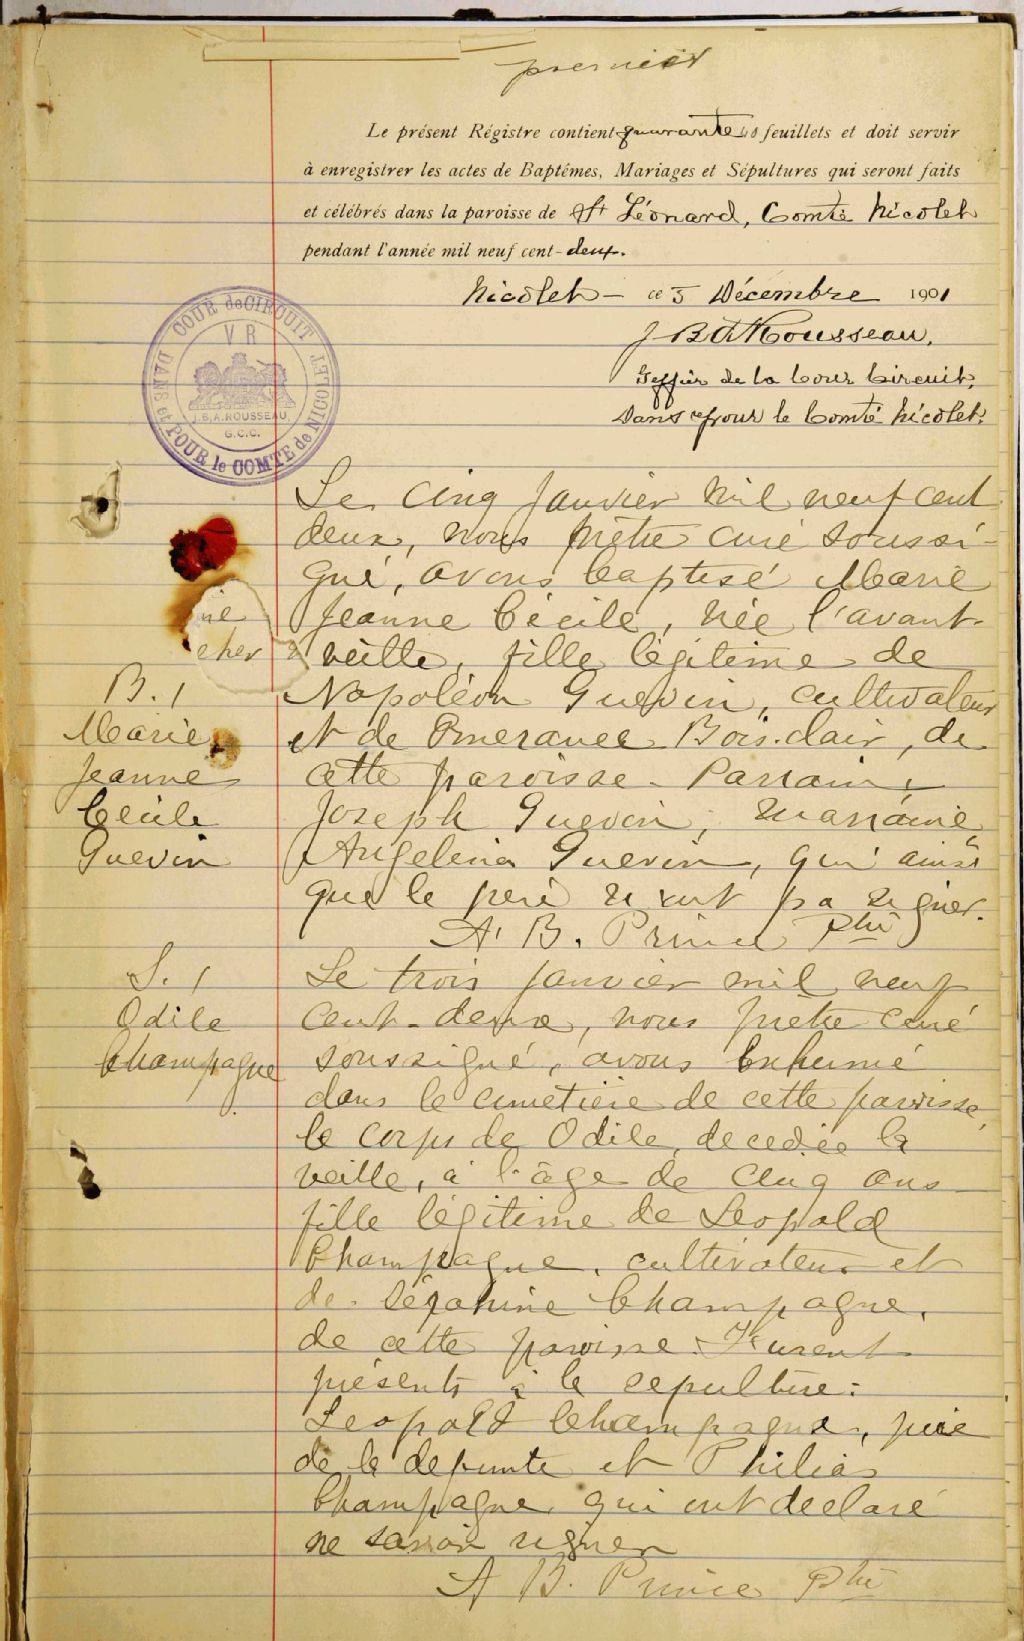 premier
Le présent Régistre contient quarante 40 feuillets et doit servir
à enregistrer les actes de Baptêmes, Mariages et Sépultures qui seront faits
et célébrés dans la paroisse de St Léonard, Comté Nicolet
pendant l'année mil neuf cent-deux.
Nicolet - ce 3 Décembre 1901
J B A Rousseau,
Greffier de la Cour Circuit,
Dans et pour le Comté Nicolet.
COUR de CIRCUIT
DANS et POUR le COMTE de NICOLET
V R
J.B.A. ROUSSEAU,
G.C.C.
Le cinq janvier mil neuf cent
deux, nous prêtre curé soussi-
gné, avons baptisé Marie
Jeanne Cécile, née l'avant-
veille, fille légitime de
Napoléon Guevin, cultivateur
et de Emerance Boisclair, de
cette paroisse - Parrain,
Joseph Guevin; marraine,
Angelena Guevin, qui ainsi
que le père n'ont pa signer.
A. B. Prince Ptre
ne
cher
B. 1
Marie
Jeanne
Cecile
Guevin
S. 1
Odile
Champagne
Le trois janvier mil neuf
cent-deux, nous prêtre curé
soussigné, avons inhumé
dans le cimetière de cette paroisse,
le corps de Odile, decedée la
veille, à l'âge de cinq ans
fille légitime de Leopold
Champagne, cultivateur et
de Séraphine Champagne,
de cette paroisse. Furent
présents à la sepulture:
Leopold Champagne, père
de la defunte et Philias
Champagne qui ont declaré
ne savoir signer
A B. Prince Ptre